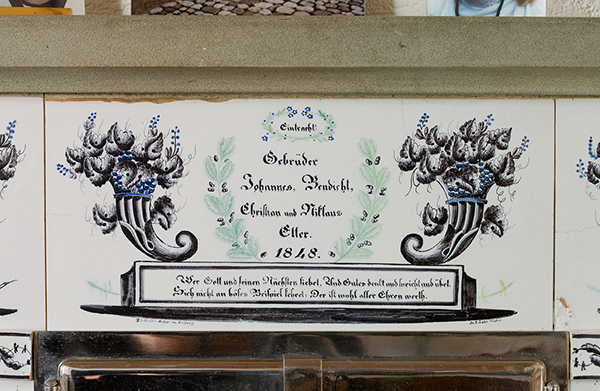 Eintracht:
Gebrüder
Johannes, Bendicht,
Christian und Niklaus
Etter.
1848.
Wer Gott und seinen Nächsten liebet, Und Gutes denkt und spricht und übet.
Sich nicht an böses Beyspiel kehret: Der ist wohl aller Ehren werth.